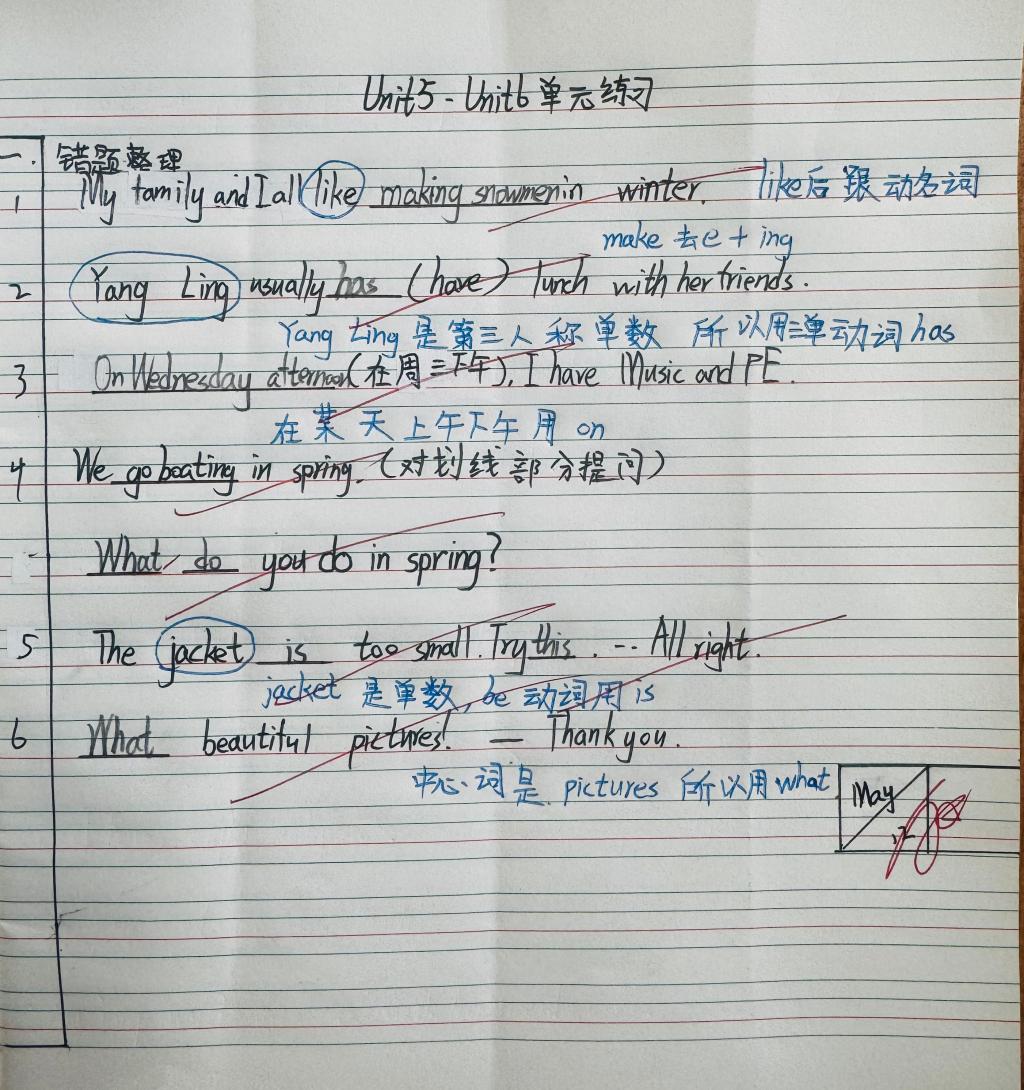 Unit5-Unit6单元练习
一. 错题整理
1 My family and I all like making snowmen in winter. like后跟动名词
make去e+ing
2 Yang Ling usually has (have) lunch with her friends.
Yang Ling是第三人称单数 所以用三单动词has
3 On Wednesday afternoon(在周三下午), I have Music and PE.
在某天上午下午用on
4 We go boating in spring. (对划线部分提问)
What do you do in spring?
5 The jacket is too small. Try this. -- All right.
jacket是单数, be动词用is
6 What beautiful pictures! — Thank you.
中心词是pictures 所以用what
May
12